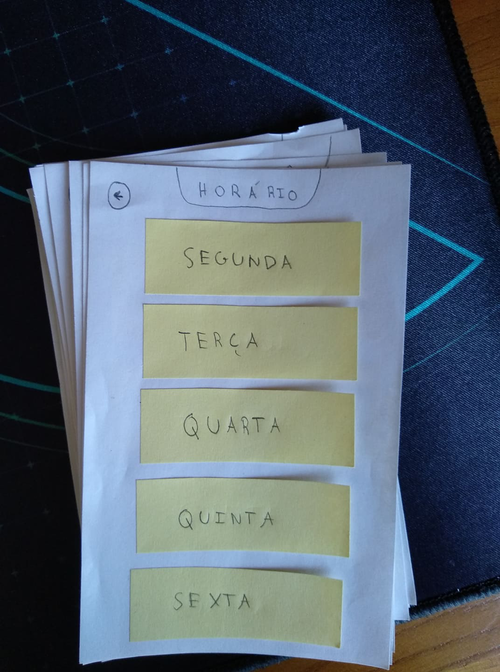 HORÁRIO
SEGUNDA
TERÇA
QUARTA
QUINTA
SEXTA